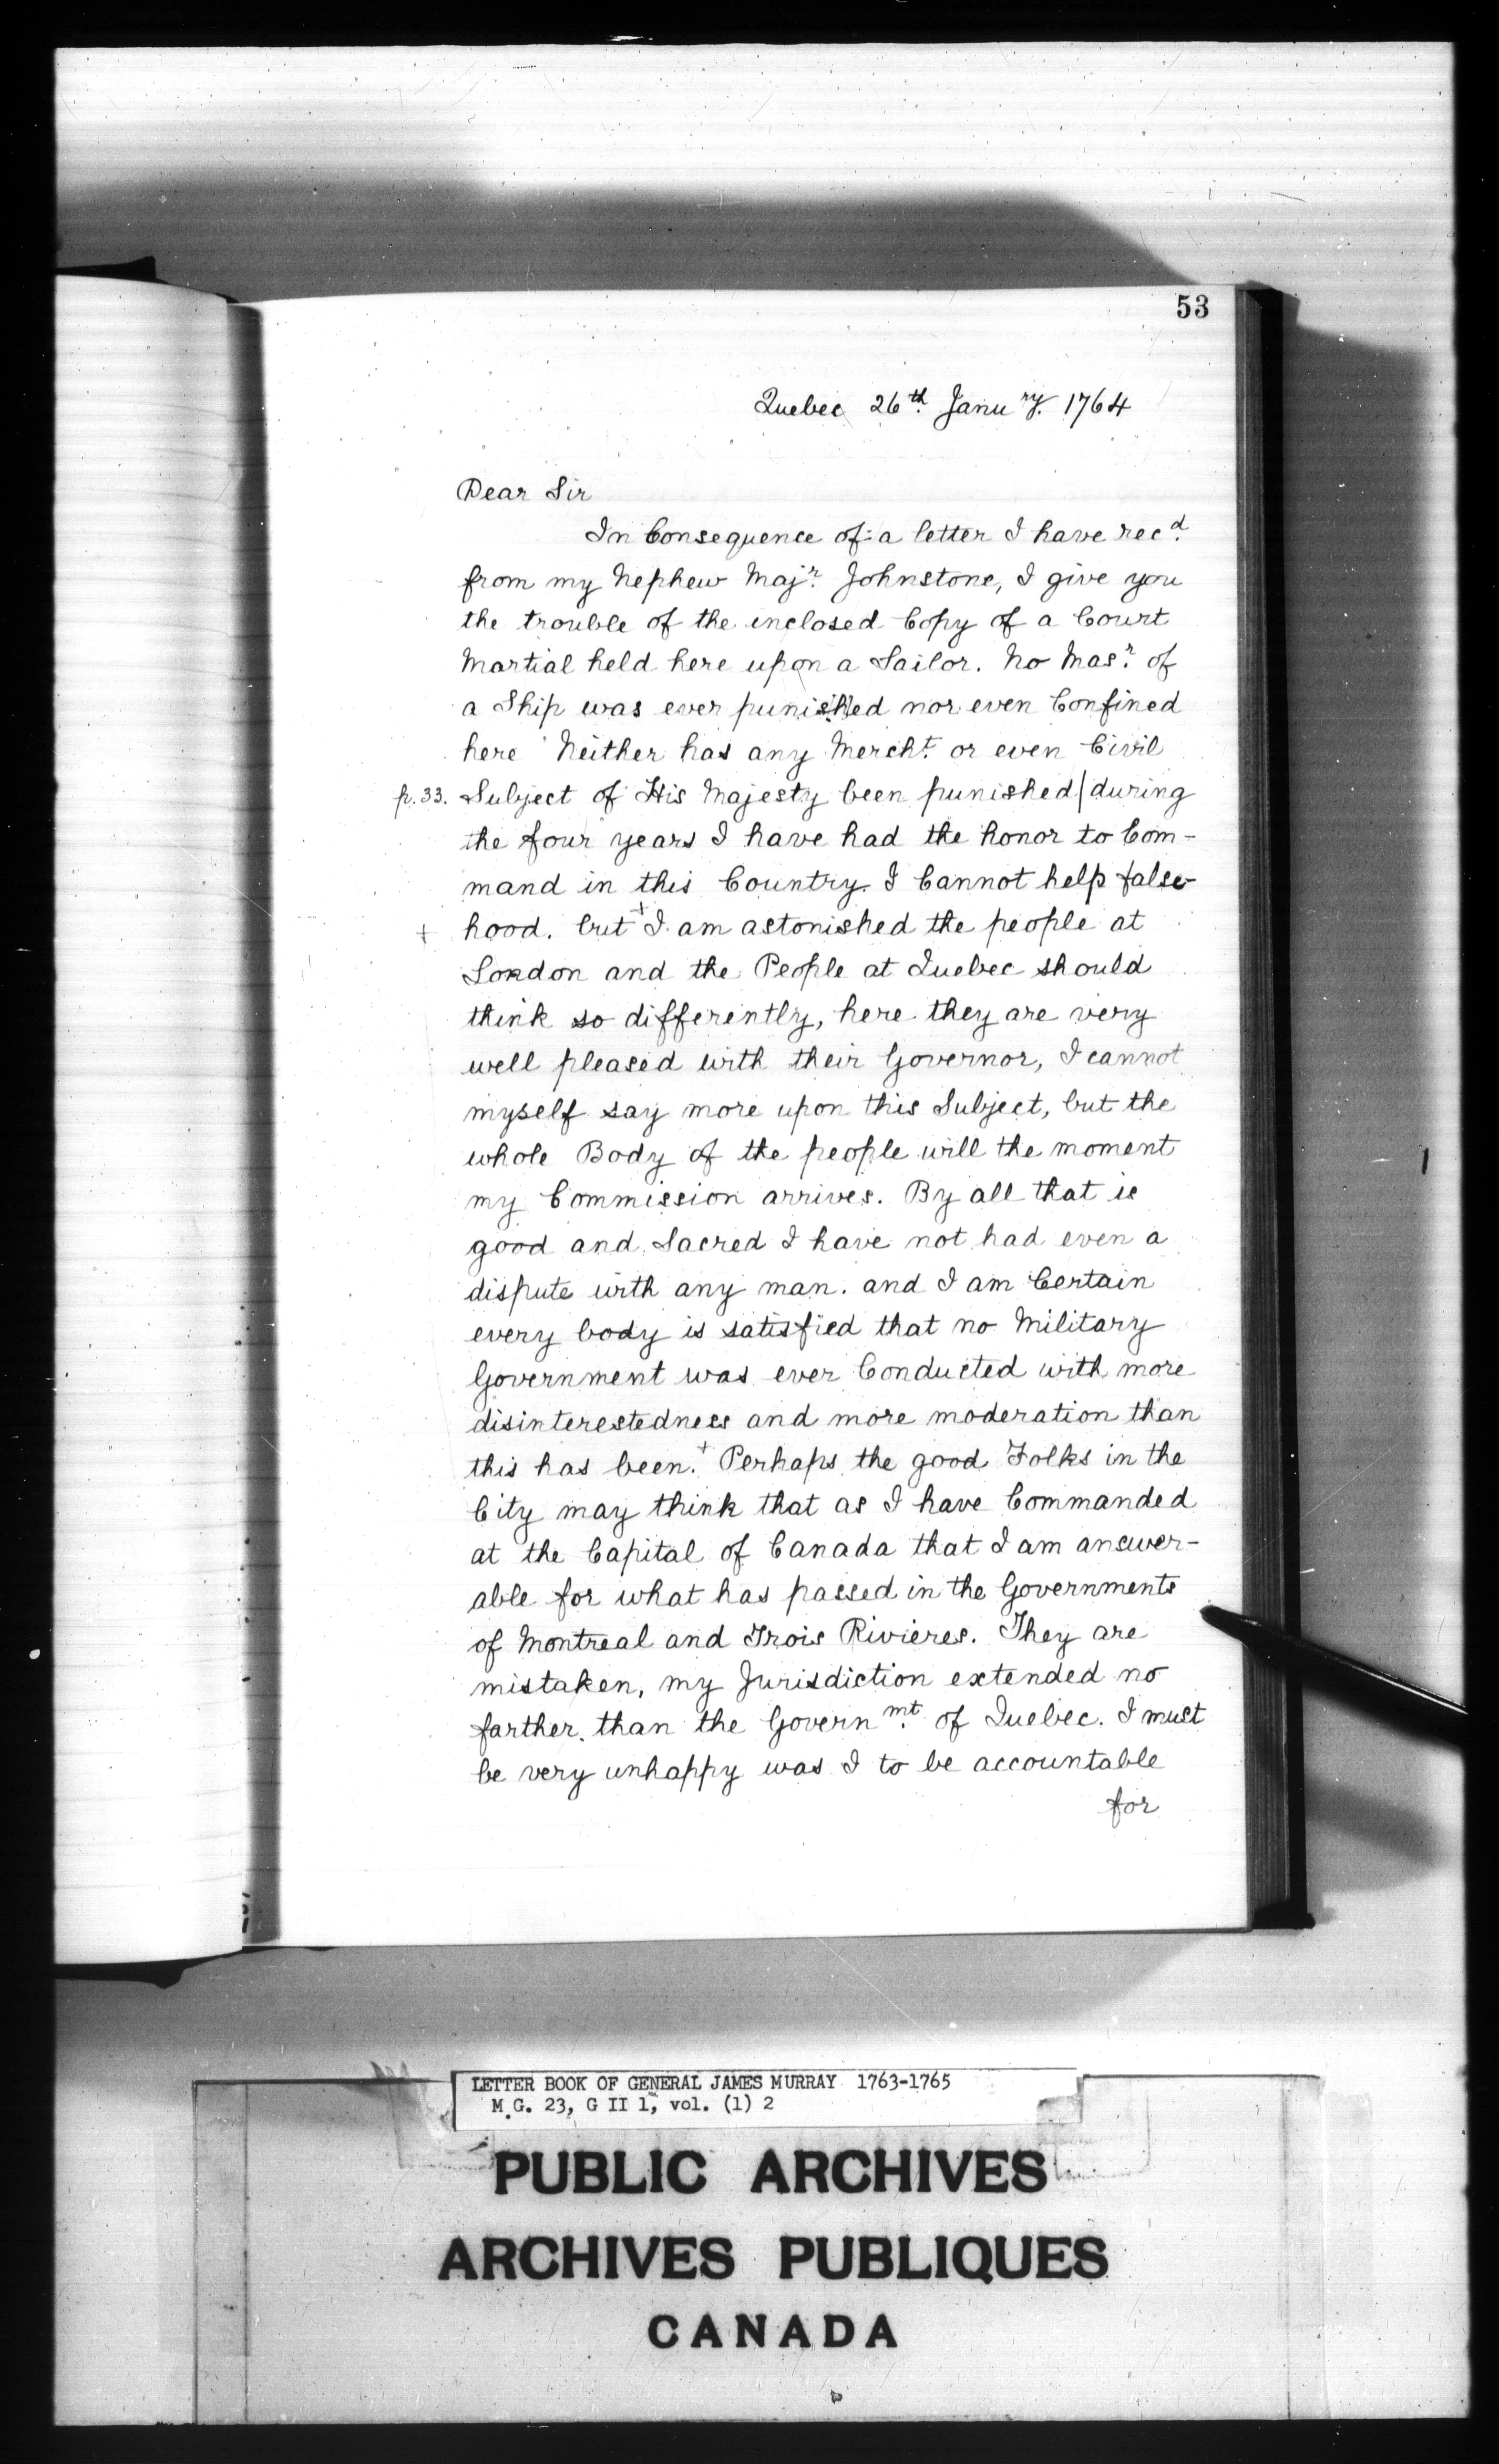 53
Quebec 26th. Janury. 1764
Dear Sir
In Consequence of a letter I have recd.
from my Nephew Majr. Johnstone, I give you
the trouble of the inclosed Copy of a Court
Martial held here upon a Sailor. No Masr. of
a Ship was ever punished nor even Confined
here Neither has any Mercht. or even Civil
p. 33. Subject of His Majesty been punished/during
the four years I have had the honor to Com-
mand in this Country. I Cannot help false-
+ hood. but + I am astonished the people at
London and the People at Quebec should
think so differently, here they are very
well pleased with their Governor, I cannot
myself say more upon this Subject, but the
whole Body of the people will the moment
my Commission arrives. By all that is
good and Sacred I have not had even a
dispute with any man. and I am Certain
every body is satisfied that no Military
Government was ever Conducted with more
disinterestedness and more moderation than
this has been.+ Perhaps the good Folks in the
City may think that as I have Commanded
at the Capital of Canada that I am answer-
able for what has passed in the Governments
of Montreal and Trois Rivieres. They are
mistaken, my Jurisdiction extended no
farther. than the Governmt. of Quebec. I must
be very unhappy was I to be accountable
for
LETTER BOOK OF GENERAL JAMES MURRAY 1763-1765
M.G. 23, G II 1, vol. (1) 2
PUBLIC ARCHIVES
ARCHIVES PUBLIQUES
CANADA